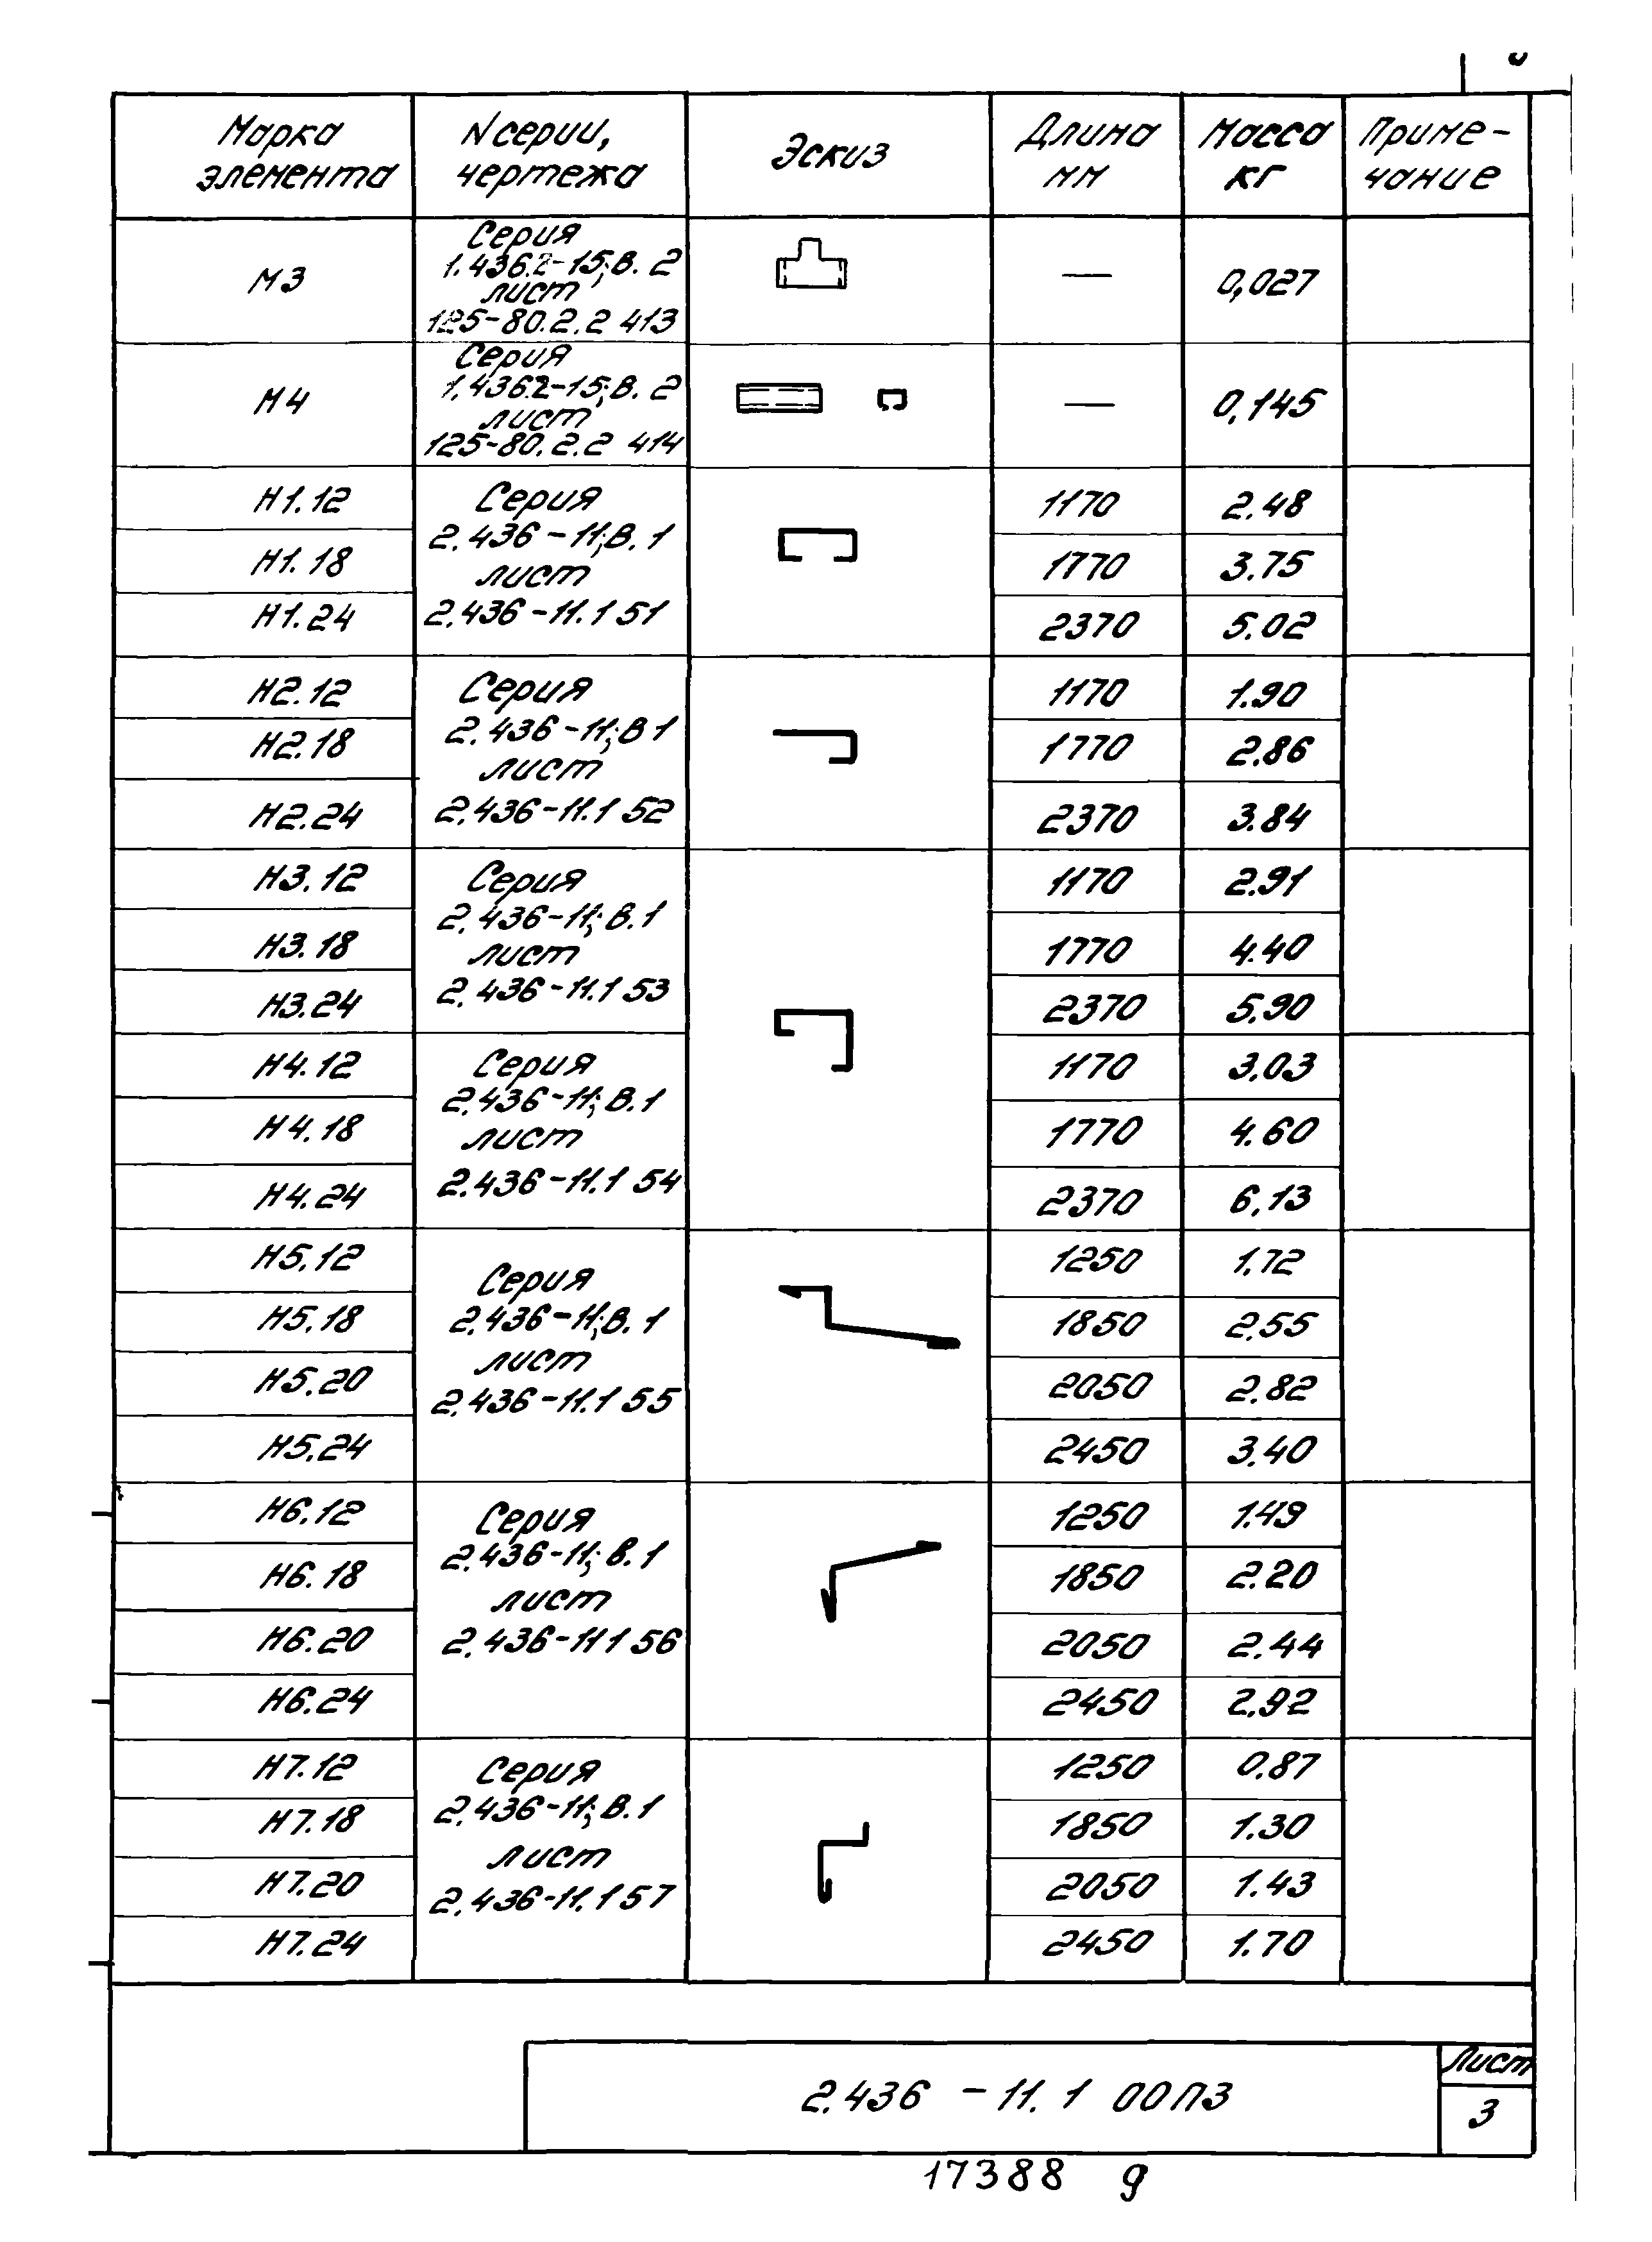 Марка элемента
N серии, чертежа
Эскиз
Длина мм
Масса кг
Приме-чание
М3
Серия
1.436.2-15; В. 2
лист
125-80.2.2 413
—
0,027
М4
Серия
1.436.2-15; В. 2
лист
125-80.2.2 414
—
0,145
Н1.12
1170
2.48
Н1.18
1770
3.75
Н1.24
2370
5.02
Серия
2.436-11; В. 1
лист
2.436-11.1 51
Н2.12
1170
1.90
Н2.18
1770
2.86
Н2.24
2370
3.84
Серия
2.436-11; В 1
лист
2.436-11.1 52
Н3.12
1170
2.91
Н3.18
1770
4.40
Н3.24
2370
5.90
Серия
2.436-11; В.1
лист
2.436-11.1 53
Н4.12
1170
3.03
Н4.18
1770
4.60
Н4.24
2370
6.13
Серия
2.436-11; В.1
лист
2.436-11.1 54
Н5.12
1250
1.72
Н5.18
1850
2.55
Н5.20
2050
2.82
Н5.24
2450
3.40
Серия
2.436-11; В. 1
лист
2.436-11.1 55
Н6.12
1250
1.49
Н6.18
1850
2.20
Н6.20
2050
2.44
Н6.24
2450
2.92
Серия
2.436-11; В.1
лист
2.436-11 1 56
Н7.12
1250
0.87
Н7.18
1850
1.30
Н7.20
2050
1.43
Н7.24
2450
1.70
Серия
2.436-11; В.1
лист
2.436-11.1 57
2.436 - 11. 1 00ПЗ
Лист
3
17388 9